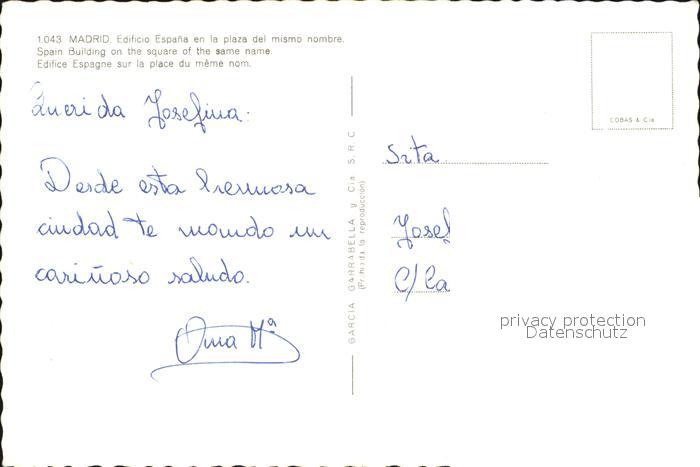 1.043 MADRID. Edificio España en la plaza del mismo nombre.
Spain Building on the square of the same name.
Edifice Espagne sur la place du même nom.
Querida Josefina:
Desde esta hermosa
ciudad te mando un
cariñoso saludo.
Ana Mª
GARCIA GARRABELLA y Cia S.R.C
(Prohibida la reproducción)
COBAS & Cia
Srta
Josef
C/ La
privacy protection
Datenschutz